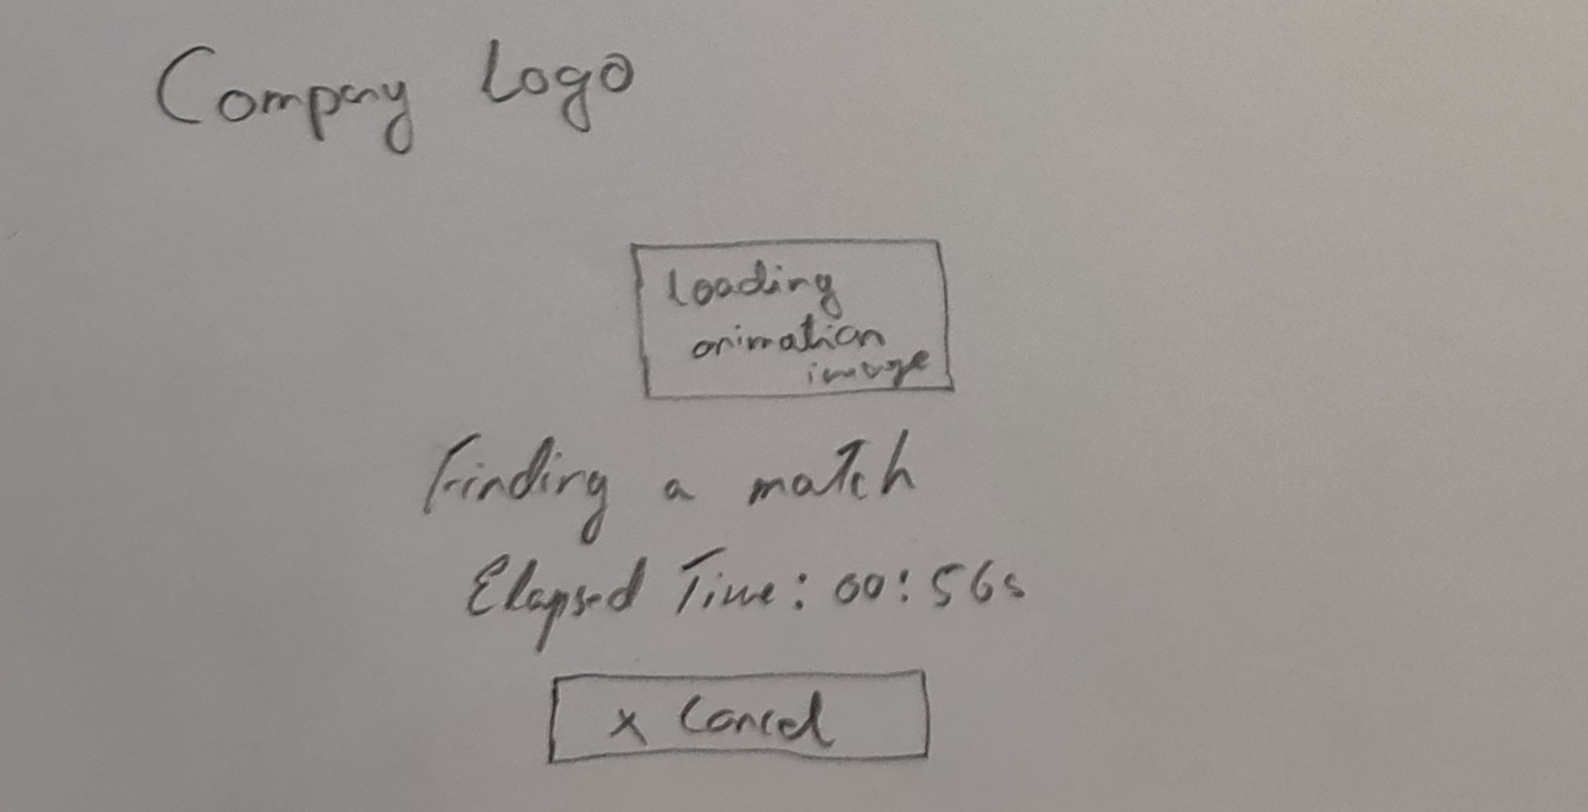 Company Logo
Loading
animation
image
Finding a match
Elapsed Time: 00:56s
x Cancel